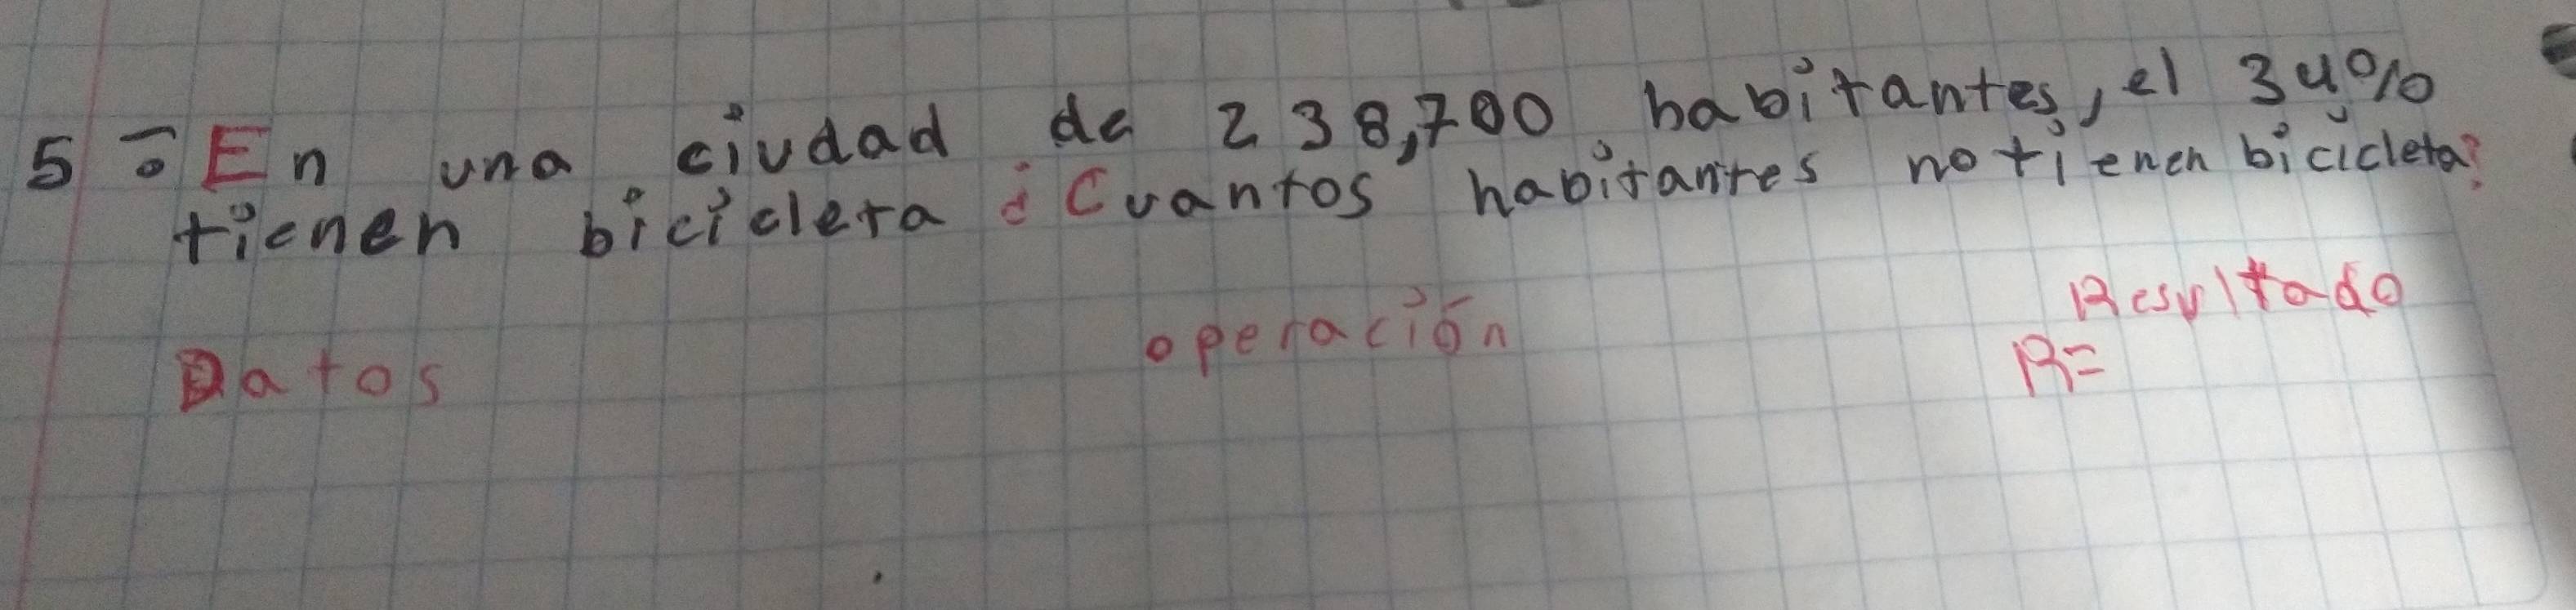 5-. En una ciudad de 238,700 habitantes, el 34%
tienen bicicleta ¿Cuantos habitantes no tienen bicicleta?
Datos
operación
Resultado
R=